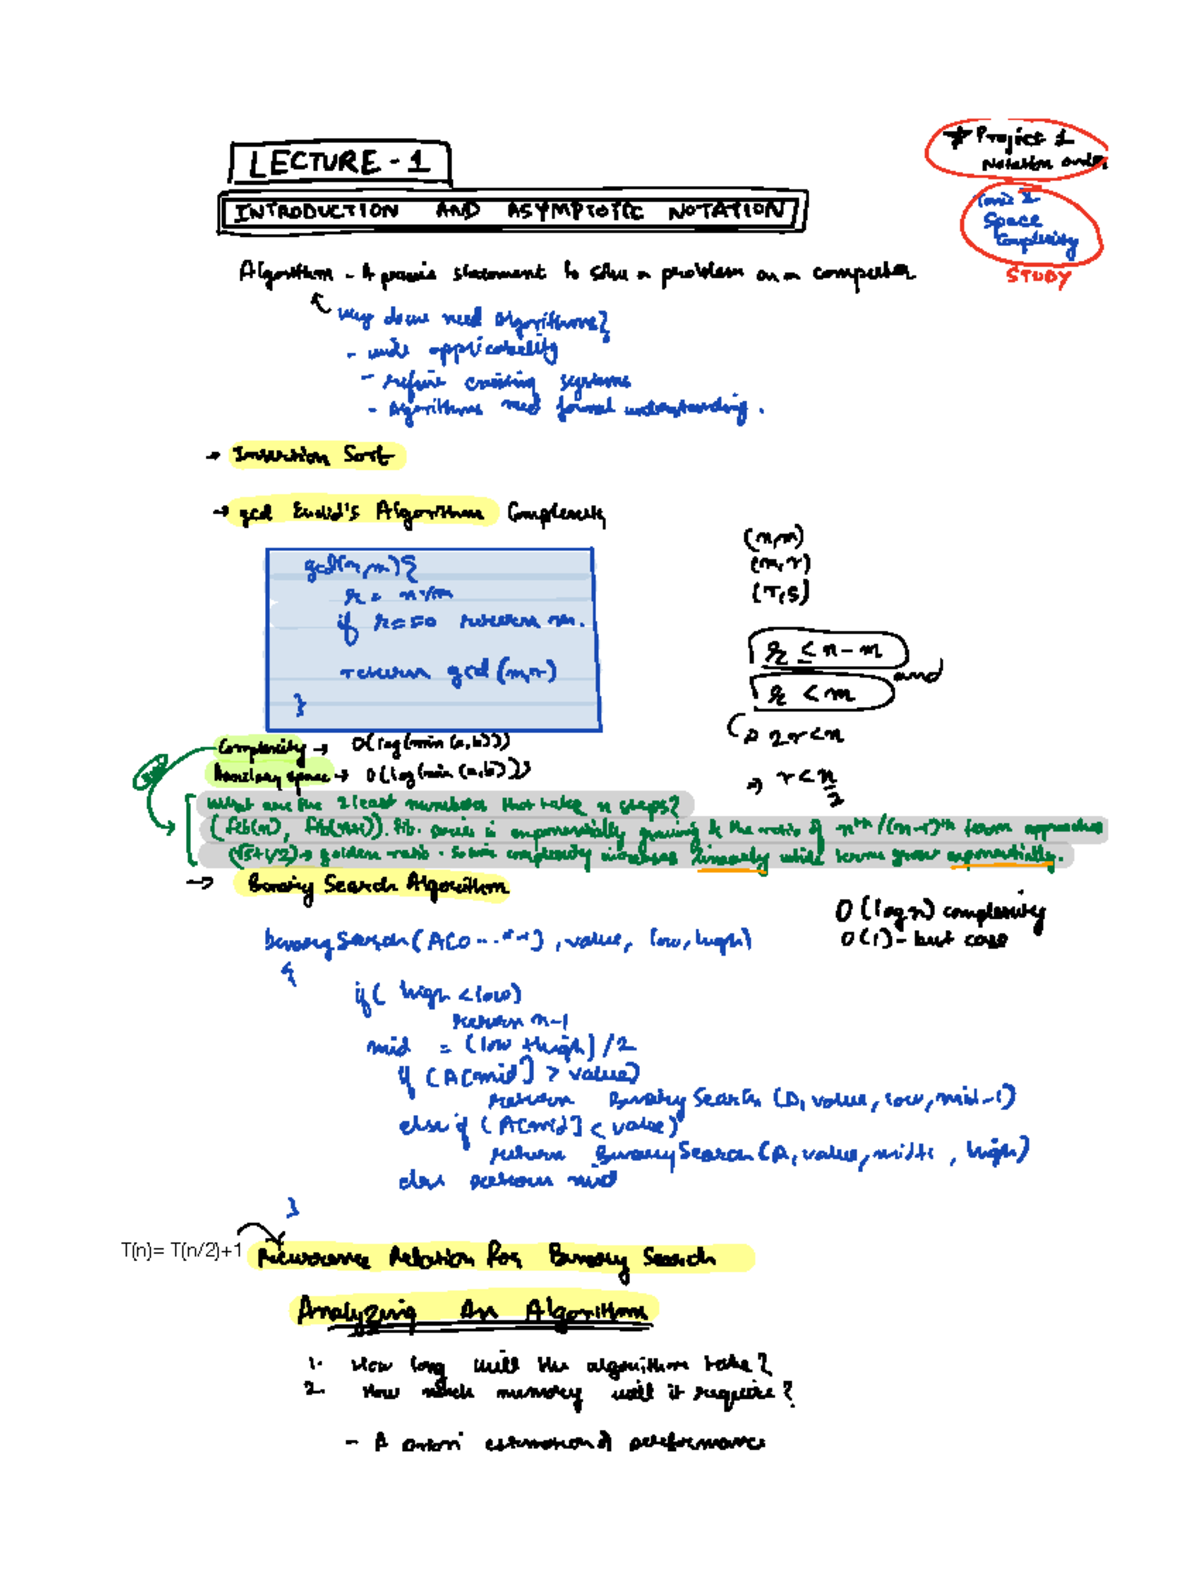 LECTURE - 1
* Project 1
Notation
INTRODUCTION AND ASYMPTOTIC NOTATION
Topic 2
Space
Complexity
STUDY
Algorithm - A precise statement to solve a problem on a computer
Why do we need algorithms?
- wide applicability
- refine existing systems
- Algorithms need formal understanding.
→ Insertion Sort
→ gcd Euclid's Algorithm Complexity
(n,m)
(m,r)
(r,s)
gcd(n,m){
r = n%m
if r==0 return m.
return gcd(m,r)
}
r ≤ n-m
and
r < m
⇒ 2r<n
⇒ r<n/2
Complexity → O(log(min(a,b)))
Auxiliary space → O(log(min(a,b)))
What are the 2 least numbers that take n steps?
(fib(n), fib(n+1)). fib. series is exponentially growing & the ratio of nth/(n-1)th term approaches
(√5+1/2)→ golden ratio. So time complexity increases linearly while terms grow exponentially.
→ Binary Search Algorithm
O(log n) complexity
O(1) - best case
binarySearch(A[0...n-1], value, low, high)
{
if( high < low)
return n-1
mid = (low + high)/2
if (A[mid] > value)
return BinarySearch (A, value, low, mid-1)
else if (A[mid] < value)
return BinarySearch(A, value, mid+1, high)
else return mid
}
T(n)= T(n/2)+1
Recurrence Relation for Binary Search
Analyzing An Algorithm
1. How long will the algorithm take?
2. How much memory will it require?
- A priori estimation of performance